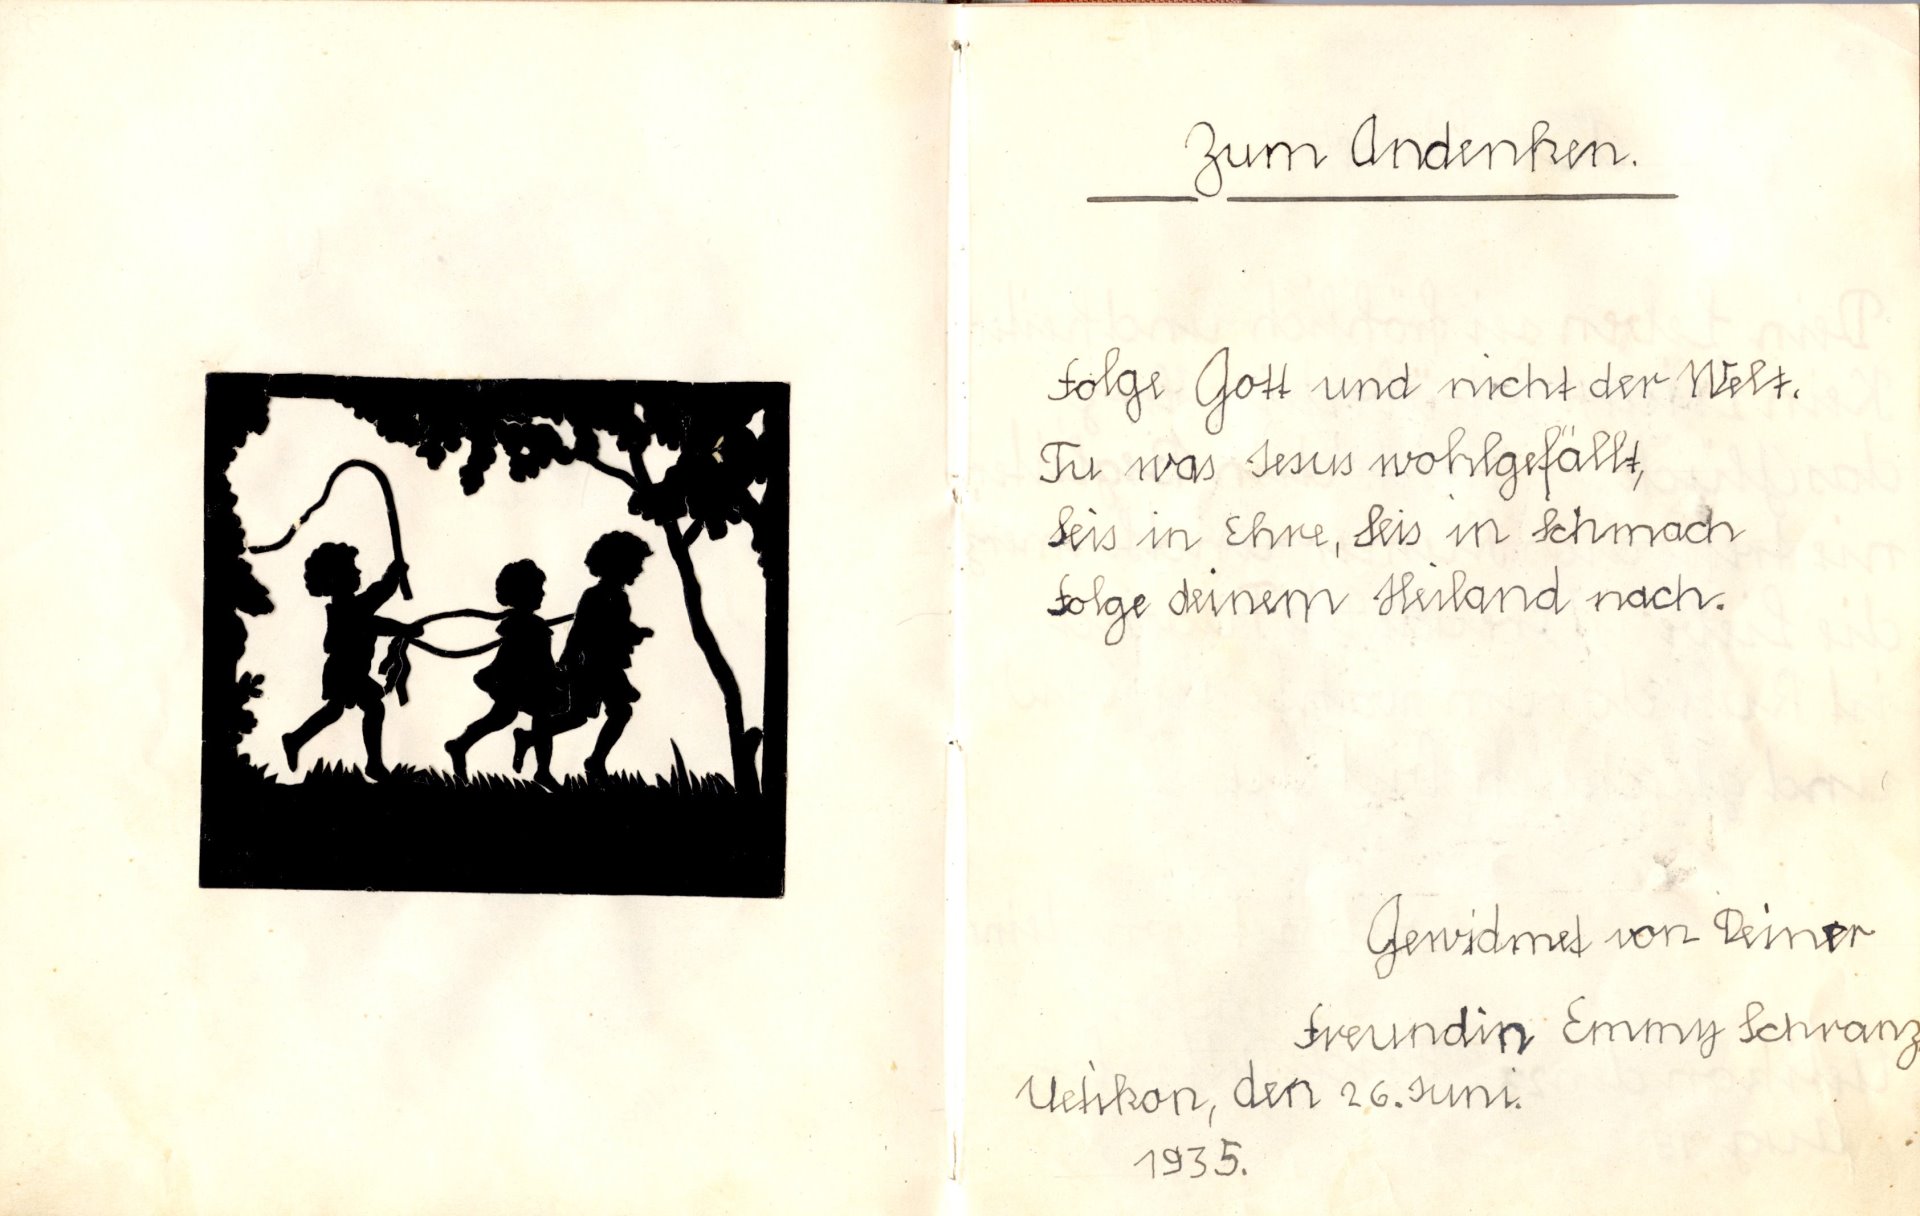 Zum Andenken.
Folge Gott und nicht der Welt.
Tu was Jesus wohlgefällt,
Seis in Ehre, Seis in Schmach
Folge deinem Heiland nach.
Gewidmet von Deiner
Freundin Emmy Schranz
Uetikon, den 26. Juni.
1935.